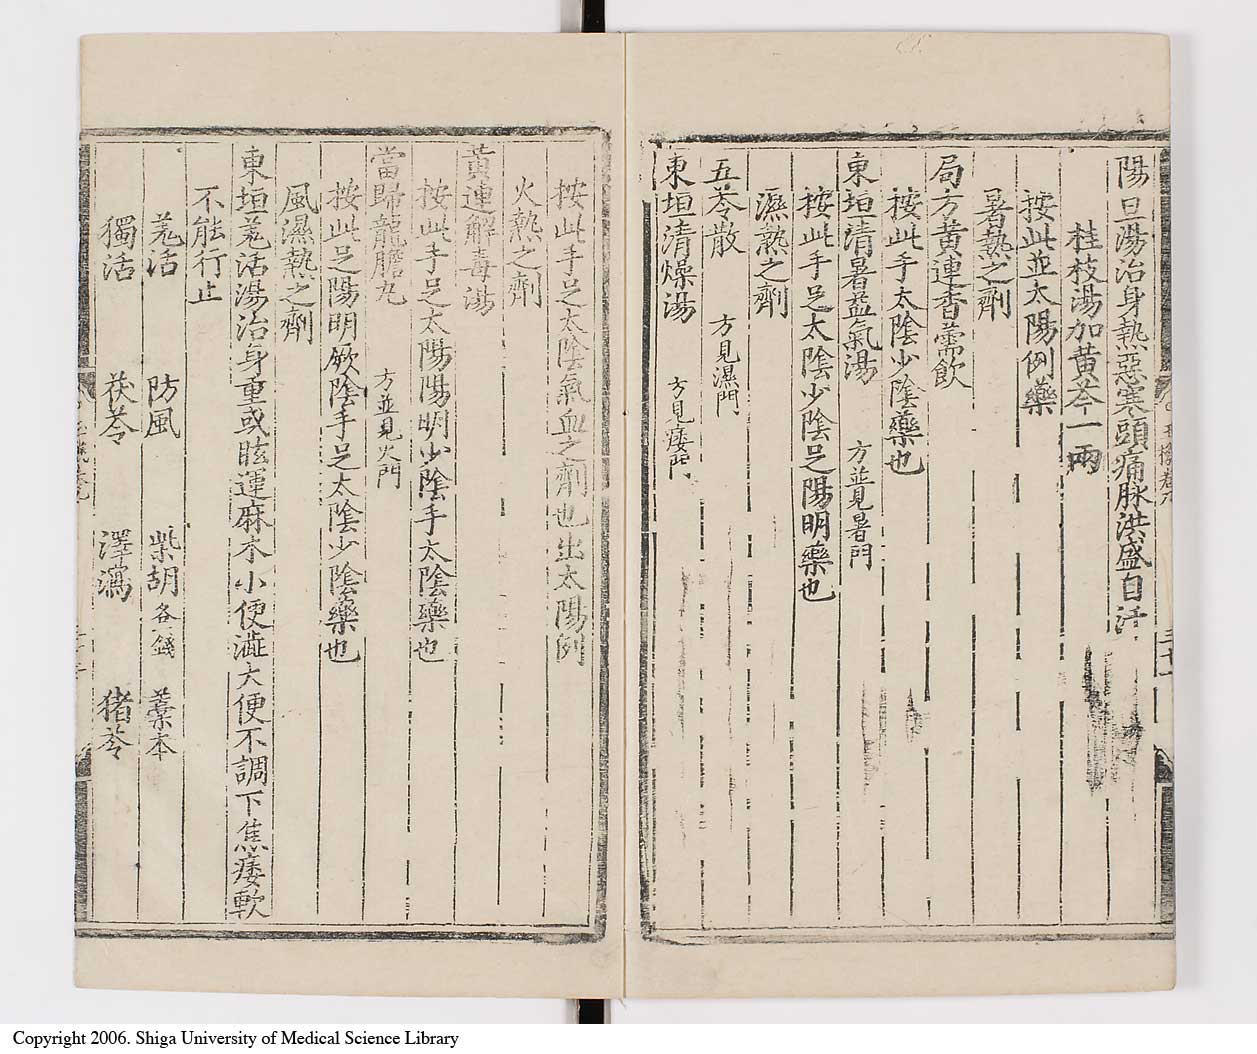 陽旦湯治身熱惡寒頭痛脉洪盛自汗
桂枝湯加黄芩一兩
按此並太陽例藥
暑熱之劑
局方黄連香薷飲
按此手太陰少陰藥也
東垣清暑益氣湯　方並見暑門
按此手足太陰少陰足陽明藥也
濕熱之劑
五苓散　方見濕門
東垣清燥湯　方見痿門
按此手足太陰氣血之劑也出太陽例
火熱之劑
黄連解毒湯
按此手足太陽陽明少陰手太陰藥也
當歸龍膽丸　方並見火門
按此足陽明厥陰手足太陰少陰藥也
風濕熱之劑
東垣羗活湯治身重或眩運麻木小便澁大便不調下焦痿軟
不能行止
羗活　防風　柴胡各一錢　藁本
獨活　茯苓　澤瀉　猪苓
Copyright 2006. Shiga University of Medical Science Library